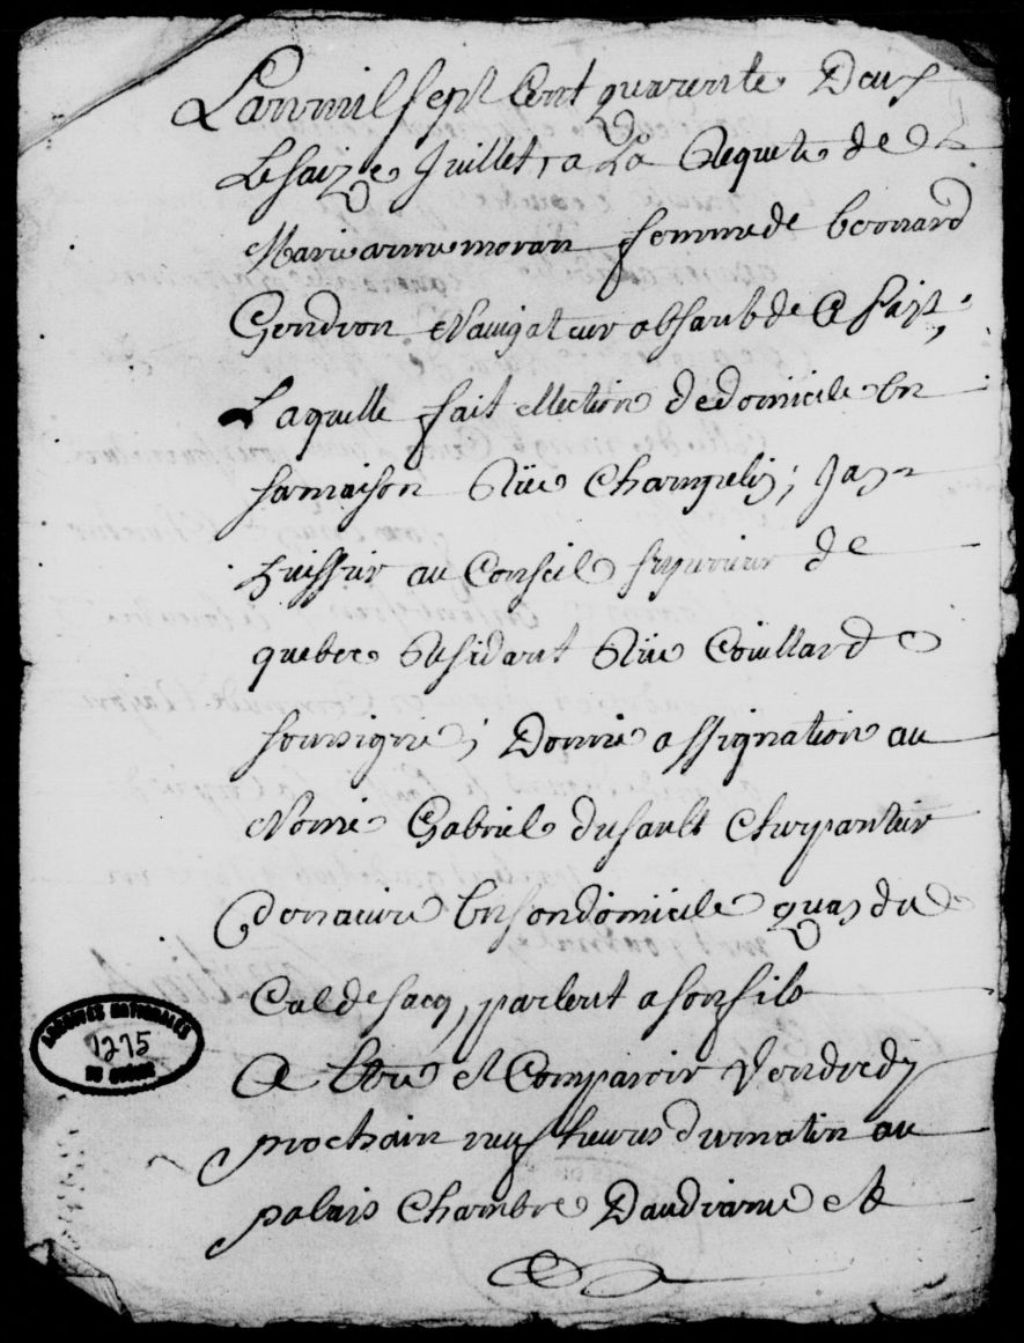 Lan mil sept Cent quarente Deux
Le saize Juillet, a La Requete de
Marie anne moran femme de bernard
Gendron Navigateur absant de Ce païs,
Laquelle fait ellection de domicile en
sa maison Rüe Champelin; Jay
huissier au Conseil superieur de
quebec Residant Rüe Couillard
soussigné; Donné assignation au
Nomé Gabriel dusault Charpantier
de navire en son domicile quay du
Cul de sacq, parlent a son fils
A Etre et Comparoir Vendredy
prochain neuf heures du matin au
palais Chambre Daudiance et
ARCHIVES NATIONALES
1275
DU QUÉBEC